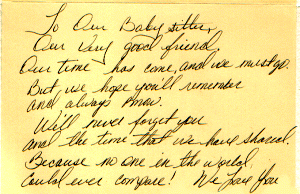 To Our Baby sitter,
Our very good friend,
Our time has come, and we must go.
But, we hope you'll remember
and always know.
We'll never forget you
and the time that we have shared.
Because no one in the world,
could ever compare! We Love You